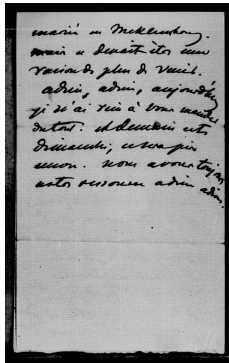 marié en
mais ce devait être une
raison de plus de venir.
adieu, adieu, aujourd'hui
je n'ai rien à vous mander
du tout. et demain est
dimanche, ce sera pis
encore. nous avons toujours
notre ressource adieu adieu.